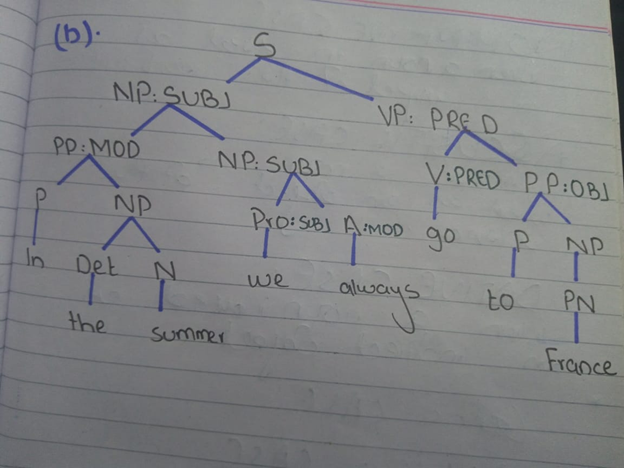 (b).
S
NP:SUBJ VP: PRED
PP:MOD NP:SUBJ V:PRED PP:OBJ
P NP Pro:SUBJ A:MOD go P NP
In Det N we always to PN
the summer France